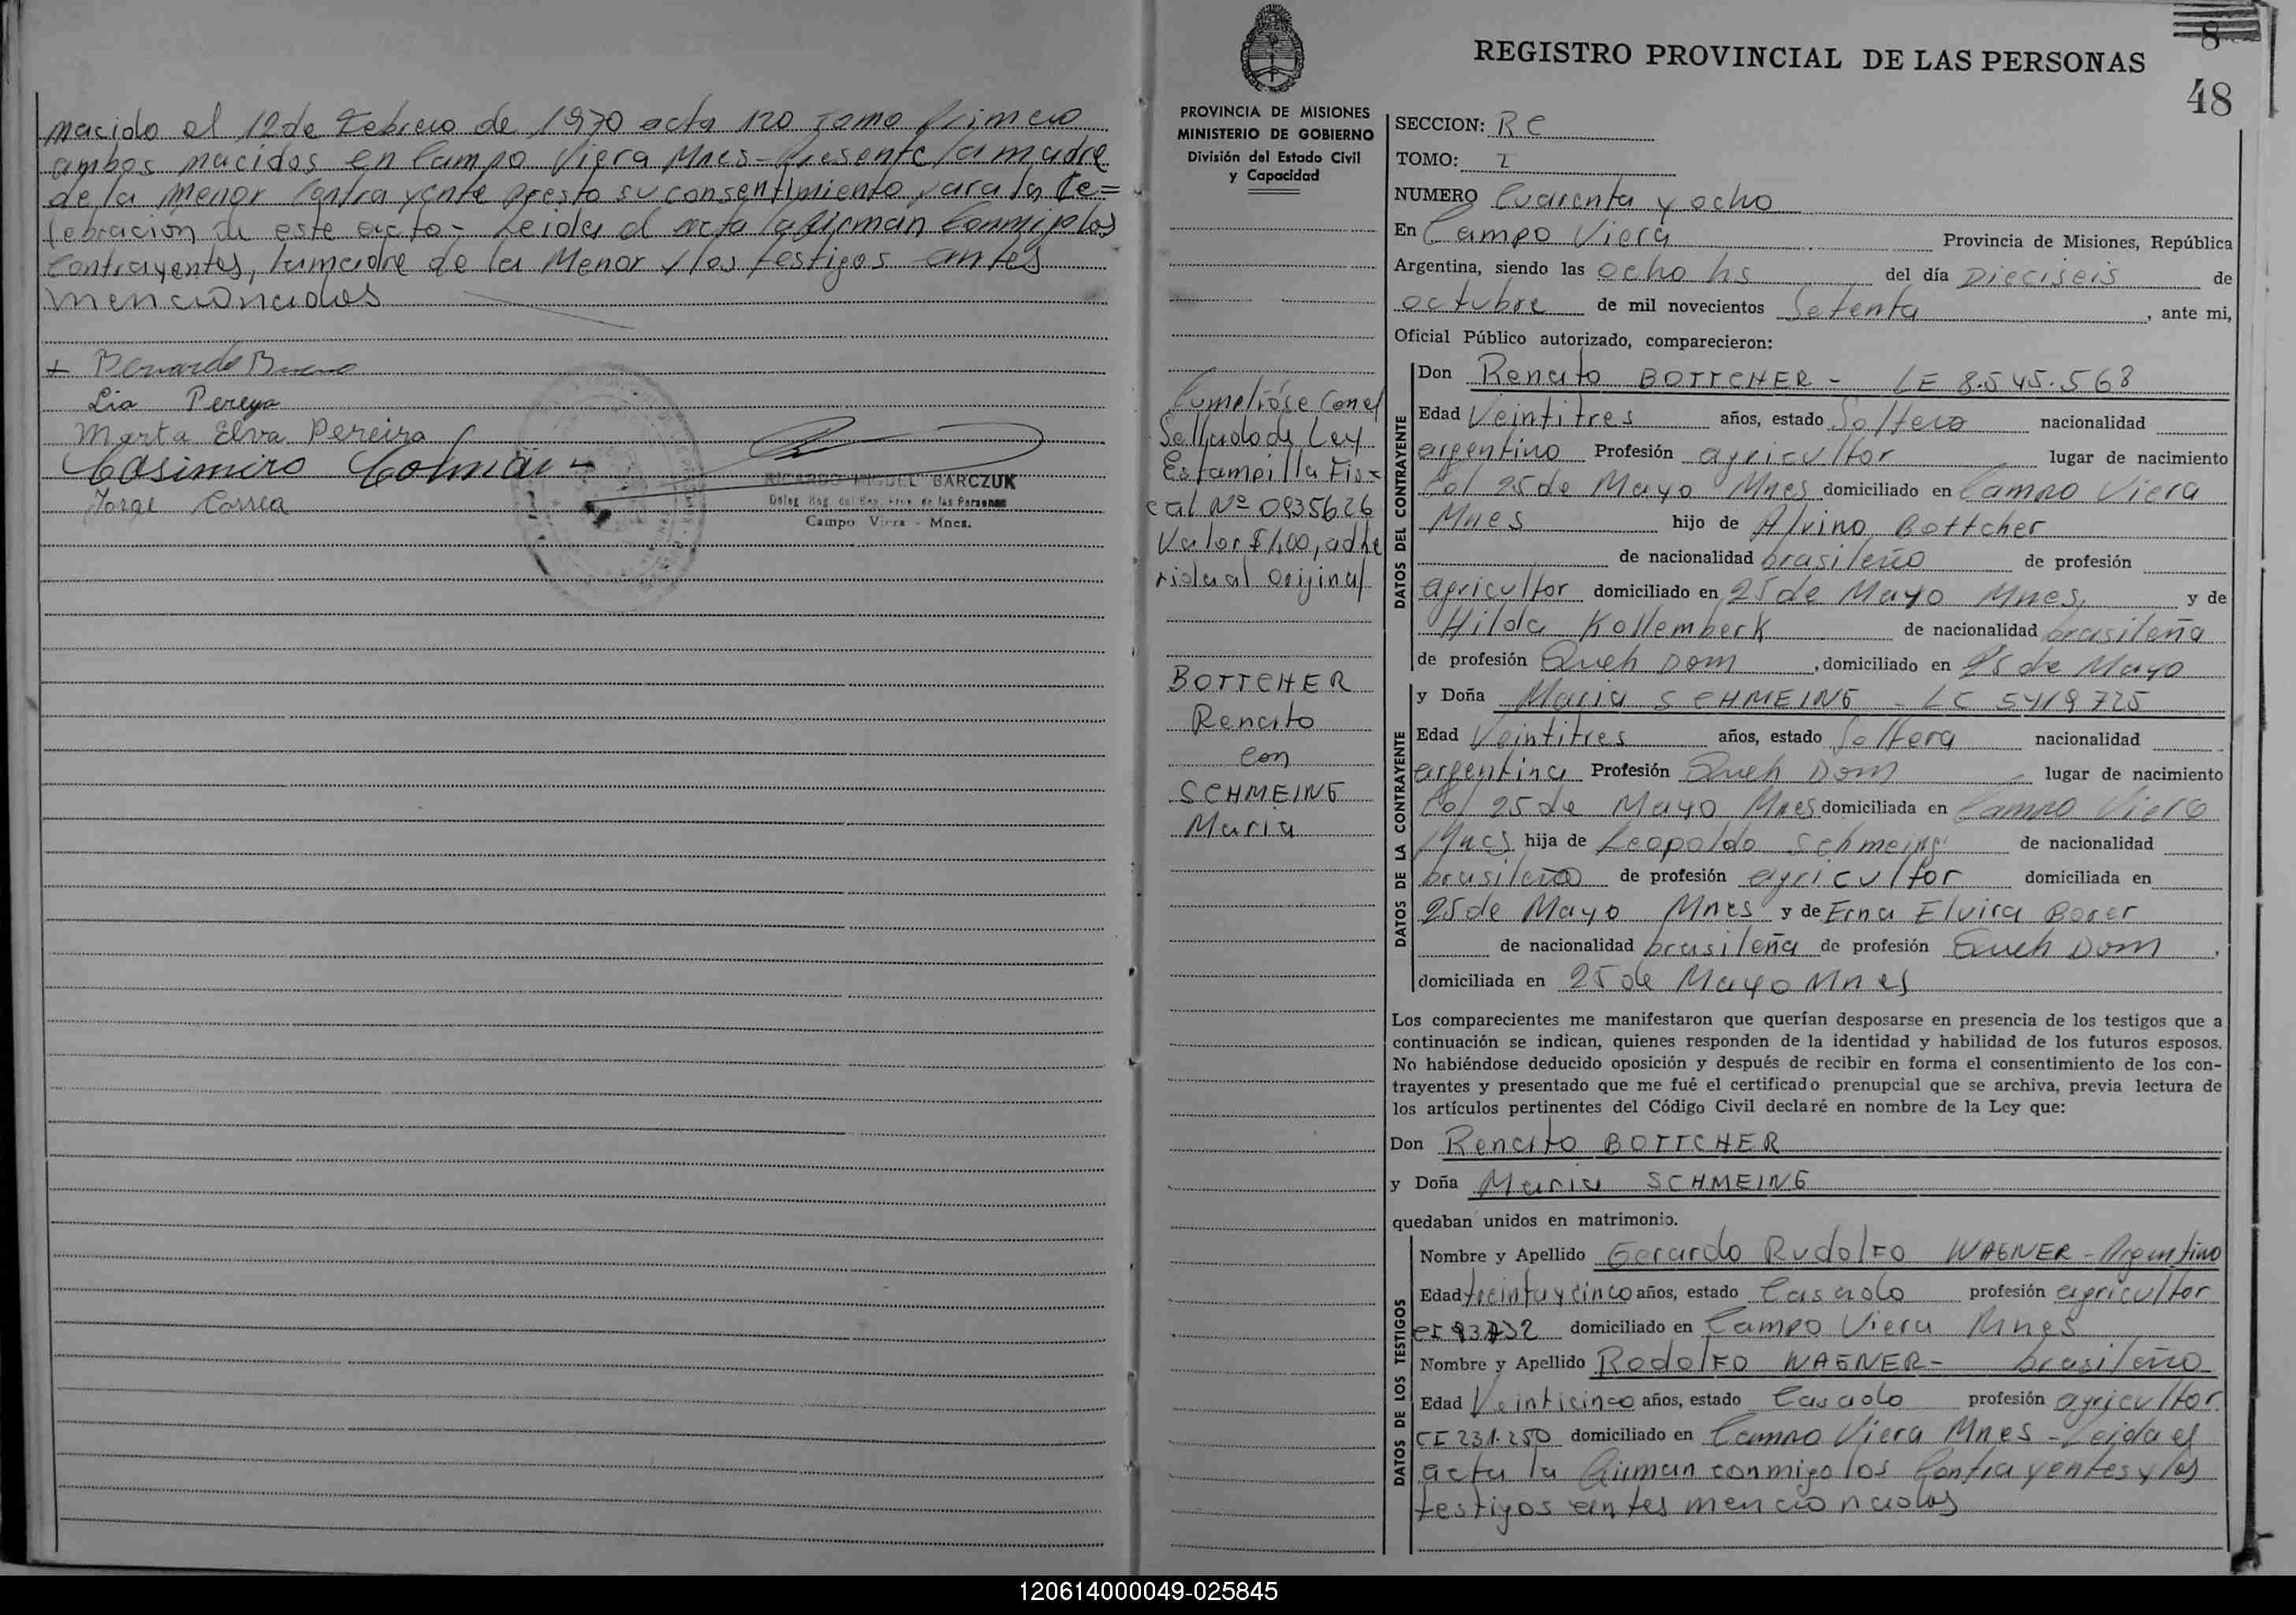 nacido el 12 de Febrero de 1970 acta 120 Tomo Primero
ambos nacidos en Campo Viera Mnes - Presente la madre
de la menor Contrayente presto su consentimiento para la Ce=
lebracion de este acto - Leida el acta la firman Conmigo los
Contrayentes, la madre de la Menor y los testigos antes
mencionados
+ Bernardo
Lia Pereyra
Marta Elva Pereira
Casimiro Colman
Jorge Correa
RICARDO MIGUEL BARCZUK
Deleg. Reg. del Reg. Prov. de las Personas
Campo Viera - Mnes.
PROVINCIA DE MISIONES
MINISTERIO DE GOBIERNO
División del Estado Civil
y Capacidad
Cumplióse Con el
Sellado de Ley
Estampilla Fis=
cal Nº 0935626
Valor $ 1,00, adhe
rida al Original
BOTTCHER
Renato
con
SCHMEING
Maria
REGISTRO PROVINCIAL DE LAS PERSONAS
8
48
SECCION: RC
TOMO: I
NUMERO Cuarenta y ocho
En Campo Viera Provincia de Misiones, República
Argentina, siendo las ocho hs del día Dieciseis de
octubre de mil novecientos Setenta, ante mi,
Oficial Público autorizado, comparecieron:
DATOS DEL CONTRAYENTE
Don Renato BOTTCHER - LE 8.545.568
Edad Veintitres años, estado Soltero nacionalidad
argentino Profesión agricultor lugar de nacimiento
Col 25 de Mayo Mnes domiciliado en Campo Viera
Mnes hijo de Alvino Bottcher
de nacionalidad brasileño de profesión
agricultor domiciliado en 25 de Mayo Mnes, y de
Hilda Kollemberk de nacionalidad brasileña
de profesión Queh Dom, domiciliado en 25 de Mayo
DATOS DE LA CONTRAYENTE
y Doña Maria SCHMEING - LC 5.419.725
Edad Veintitres años, estado Soltera nacionalidad
argentina Profesión Queh Dom lugar de nacimiento
Col 25 de Mayo Mnes domiciliada en Campo Viera
Mnes hija de Leopoldo Schmeing de nacionalidad
brasileño de profesión agricultor domiciliada en
25 de Mayo Mnes y de Erna Elvira Borer
de nacionalidad brasileña de profesión Queh Dom,
domiciliada en 25 de Mayo Mnes
Los comparecientes me manifestaron que querían desposarse en presencia de los testigos que a
continuación se indican, quienes responden de la identidad y habilidad de los futuros esposos.
No habiéndose deducido oposición y después de recibir en forma el consentimiento de los con-
trayentes y presentado que me fué el certificado prenupcial que se archiva, previa lectura de
los artículos pertinentes del Código Civil declaré en nombre de la Ley que:
Don Renato BOTTCHER
y Doña Maria SCHMEING
quedaban unidos en matrimonio.
DATOS DE LOS TESTIGOS
Nombre y Apellido Gerardo Rudolfo WAGNER - Argentino
Edad treinta y cinco años, estado Casado profesión agricultor
domiciliado en Campo Viera Mnes
Nombre y Apellido Rodolfo WAGNER - brasileño
Edad Veinticinco años, estado Casado profesión agricultor.
CI 231.250 domiciliado en Campo Viera Mnes - Leida el
acta la firman conmigo los Contrayentes y los
testigos antes mencionados
120614000049-025845